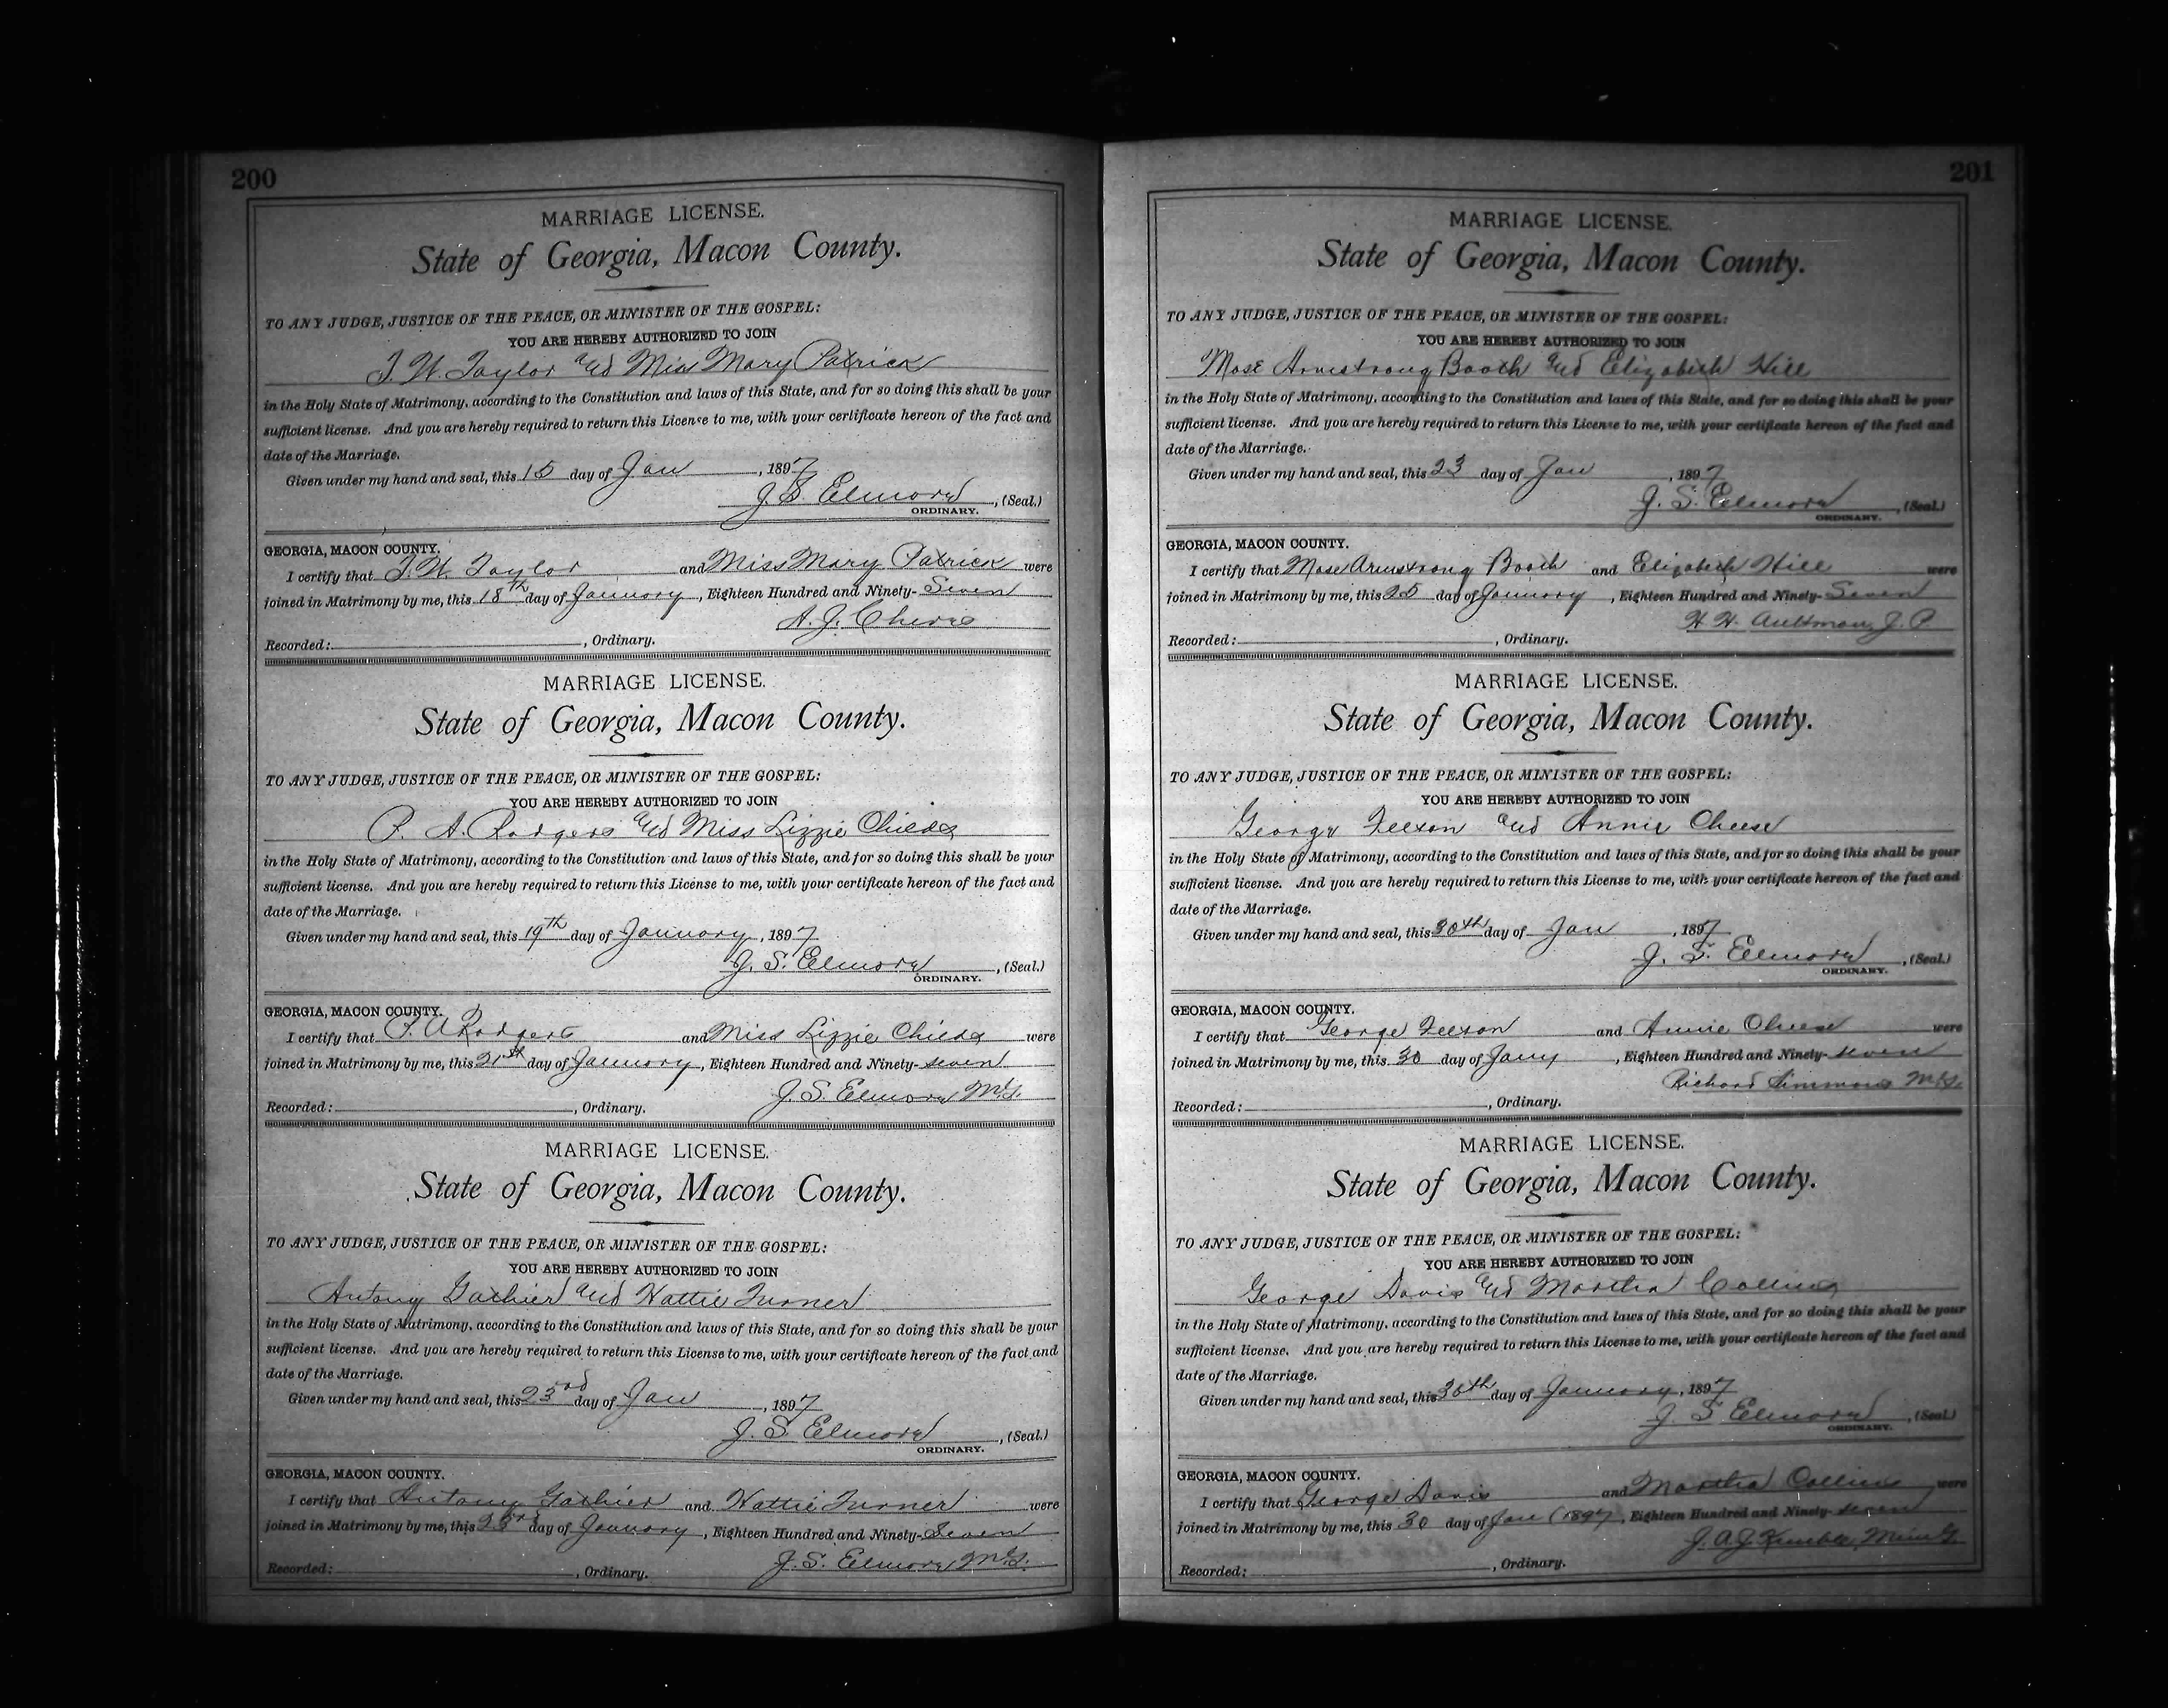 200
MARRIAGE LICENSE.
State of Georgia, Macon County.
TO ANY JUDGE, JUSTICE OF THE PEACE, OR MINISTER OF THE GOSPEL:
YOU ARE HEREBY AUTHORIZED TO JOIN
J. W. Taylor and Miss Mary Patrick
in the Holy State of Matrimony, according to the Constitution and laws of this State, and for so doing this shall be your
sufficient license. And you are hereby required to return this License to me, with your certificate hereon of the fact and
date of the Marriage.
Given under my hand and seal, this 15 day of Jan, 1897
J. S. Elmore, (Seal.)
ORDINARY.
GEORGIA, MACON COUNTY.
I certify that J. W. Taylor and Miss Mary Patrick were
joined in Matrimony by me, this 18th day of January, Eighteen Hundred and Ninety-Seven
A. J. Cheves
Recorded: , Ordinary.
MARRIAGE LICENSE.
State of Georgia, Macon County.
TO ANY JUDGE, JUSTICE OF THE PEACE, OR MINISTER OF THE GOSPEL:
YOU ARE HEREBY AUTHORIZED TO JOIN
P. A. Rodgers and Miss Lizzie Childs
in the Holy State of Matrimony, according to the Constitution and laws of this State, and for so doing this shall be your
sufficient license. And you are hereby required to return this License to me, with your certificate hereon of the fact and
date of the Marriage.
Given under my hand and seal, this 19th day of January, 1897
J. S. Elmore, (Seal.)
ORDINARY.
GEORGIA, MACON COUNTY.
I certify that P. A Rodgers and Miss Lizzie Childs were
joined in Matrimony by me, this 21st day of January, Eighteen Hundred and Ninety-seven
J. S. Elmore M.G.
Recorded: , Ordinary.
MARRIAGE LICENSE.
State of Georgia, Macon County.
TO ANY JUDGE, JUSTICE OF THE PEACE, OR MINISTER OF THE GOSPEL:
YOU ARE HEREBY AUTHORIZED TO JOIN
Antony and Hattie Turner
in the Holy State of Matrimony, according to the Constitution and laws of this State, and for so doing this shall be your
sufficient license. And you are hereby required to return this License to me, with your certificate hereon of the fact and
date of the Marriage.
Given under my hand and seal, this 23rd day of Jan, 1897
J. S. Elmore, (Seal.)
ORDINARY.
GEORGIA, MACON COUNTY.
I certify that Antony and Hattie Turner were
joined in Matrimony by me, this 23rd day of January, Eighteen Hundred and Ninety-Seven
J. S. Elmore M.G.
Recorded: , Ordinary.
201
MARRIAGE LICENSE.
State of Georgia, Macon County.
TO ANY JUDGE, JUSTICE OF THE PEACE, OR MINISTER OF THE GOSPEL:
YOU ARE HEREBY AUTHORIZED TO JOIN
Mose Armstrong Booth and Elizabeth Hill
in the Holy State of Matrimony, according to the Constitution and laws of this State, and for so doing this shall be your
sufficient license. And you are hereby required to return this License to me, with your certificate hereon of the fact and
date of the Marriage.
Given under my hand and seal, this 23 day of Jan, 1897
J. S. Elmore, (Seal.)
ORDINARY.
GEORGIA, MACON COUNTY.
I certify that Mose Armstrong Booth and Elizabeth Hill were
joined in Matrimony by me, this 25 day of January, Eighteen Hundred and Ninety-Seven
W. W. Aultman, J. P
Recorded: , Ordinary.
MARRIAGE LICENSE.
State of Georgia, Macon County.
TO ANY JUDGE, JUSTICE OF THE PEACE, OR MINISTER OF THE GOSPEL:
YOU ARE HEREBY AUTHORIZED TO JOIN
George and Annie
in the Holy State of Matrimony, according to the Constitution and laws of this State, and for so doing this shall be your
sufficient license. And you are hereby required to return this License to me, with your certificate hereon of the fact and
date of the Marriage.
Given under my hand and seal, this 30th day of Jan, 1897
J. S. Elmore, (Seal.)
ORDINARY.
GEORGIA, MACON COUNTY.
I certify that George and Annie were
joined in Matrimony by me, this 30 day of Jany, Eighteen Hundred and Ninety-seven
Richard Simmons M.G.
Recorded: , Ordinary.
MARRIAGE LICENSE.
State of Georgia, Macon County.
TO ANY JUDGE, JUSTICE OF THE PEACE, OR MINISTER OF THE GOSPEL:
YOU ARE HEREBY AUTHORIZED TO JOIN
George Davis and Martha Collins
in the Holy State of Matrimony, according to the Constitution and laws of this State, and for so doing this shall be your
sufficient license. And you are hereby required to return this License to me, with your certificate hereon of the fact and
date of the Marriage.
Given under my hand and seal, this 30th day of January, 1897
J. S Elmore, (Seal.)
ORDINARY.
GEORGIA, MACON COUNTY.
I certify that George Davis and Martha Collins were
joined in Matrimony by me, this 30 day of Jan (1897, Eighteen Hundred and Ninety-seven
J. A. J.
Recorded: , Ordinary.